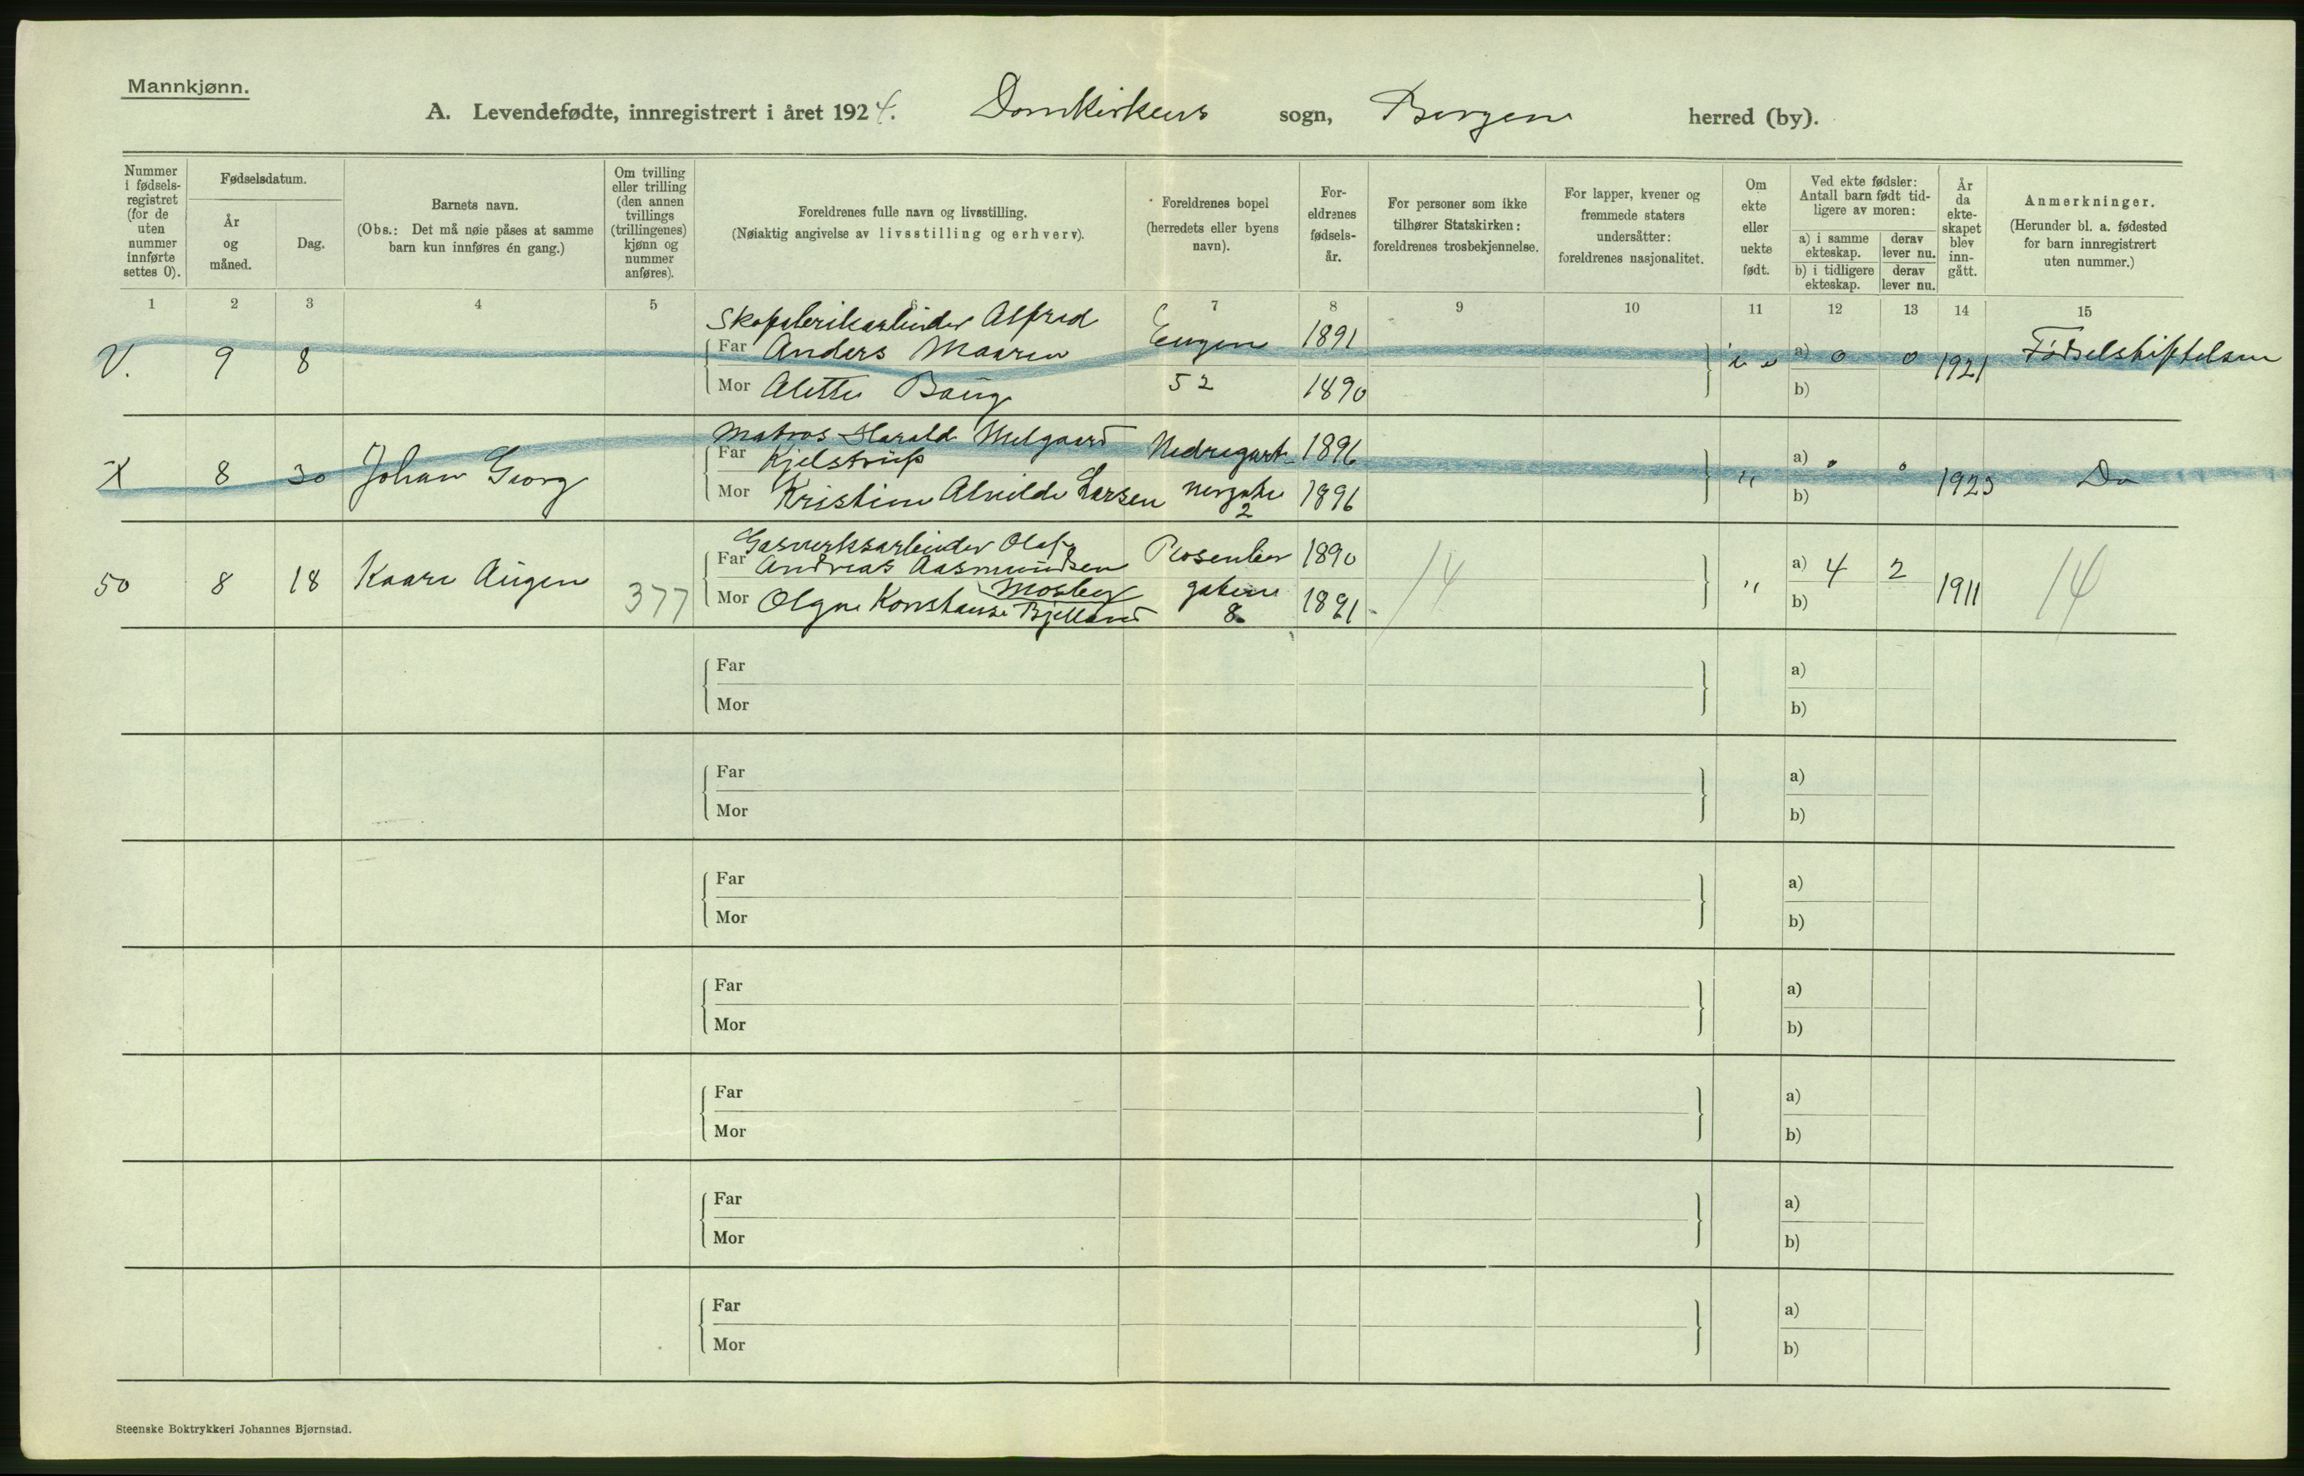 Mannkjønn.
A. Levendefødte, innregistrert i året 1924. Domkirkens sogn, Bergen herred (by).
Nummer i fødsels-registret (for de uten nummer innførte settes 0).
Fødselsdatum.
År og måned.
Dag.
Barnets navn.
(Obs.: Det må nøie påses at samme barn kun innføres én gang.)
Om tvilling eller trilling (den annen tvillings (trillingenes) kjønn og nummer anføres).
Foreldrenes fulle navn og livsstilling.
(Nøiaktig angivelse av livsstilling og erhverv).
Foreldrenes bopel
(herredets eller byens navn).
For-eldrenes fødsels-år.
For personer som ikke tilhører Statskirken: foreldrenes trosbekjennelse.
For lapper, kvener og fremmede staters undersåtter: foreldrenes nasjonalitet.
Om ekte eller uekte født.
Ved ekte fødsler: Antall barn født tid-ligere av moren:
a) i samme ekteskap. derav lever nu.
b) i tidligere ekteskap. derav lever nu.
År da ekte-skapet blev inn-gått.
Anmerkninger.
(Herunder bl. a. fødested for barn innregistrert uten nummer.)
1 2 3 4 5 6 7 8 9 10 11 12 13 14 15
Skofabrikarbeider Alfred
V. 9 8 Far Anders Maaren Eugen 1891 a) 0 0 1921 Fødselsstiftelsen
Mor Alette Baug 52 1890 b)
Matros Harald Melgaard
X 8 30 Johan Georg Far Kjelstrup Nedregart- 1896 " a) 0 0 1923 Do
Mor Kristine Alvilde Larsen nergate 2 1896 b)
Gasverksarbeider Olaf
50 8 18 Kaare Augen 377 Far Andreas Aasmundsen Rosenber 1890 14 " a) 4 2 1911 14
Mosbey
Mor Olga Konstanse Bjelland gaten 8 1891 b)
Far a)
Mor b)
Far a)
Mor b)
Far a)
Mor b)
Far a)
Mor b)
Far a)
Mor b)
Far a)
Mor b)
Far a)
Mor b)
Steenske Boktrykkeri Johannes Bjørnstad.